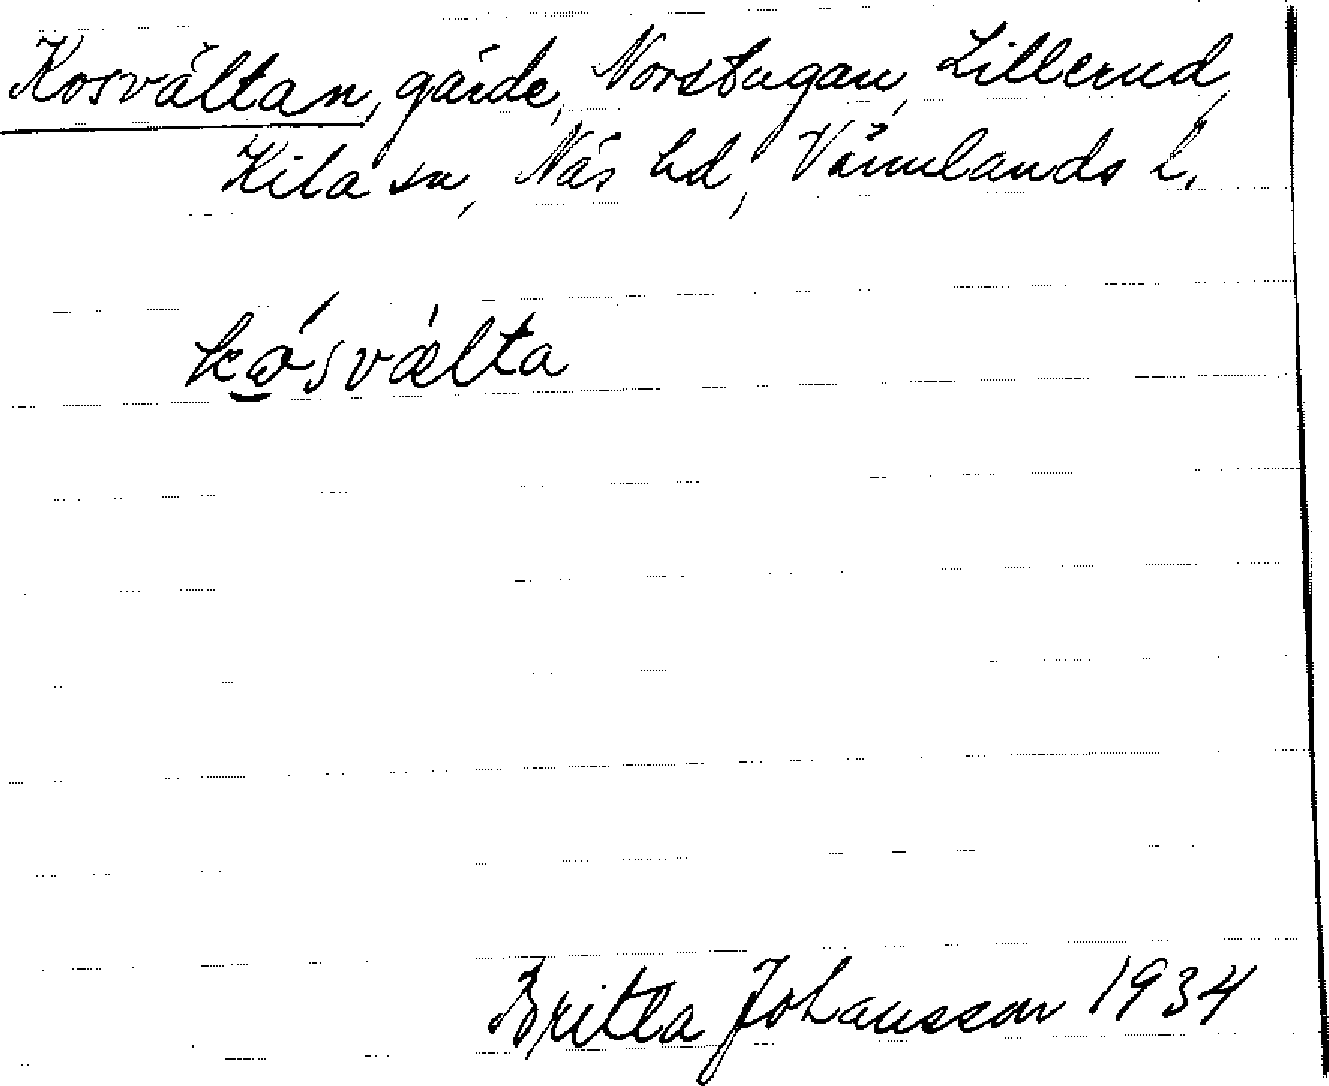 Kosvältan, gärde, Norstugan, Lillerud,
Kila sn, Näs hd, Värmlands l.
kɷ́svæ̀lta
Britta Johansson 1934